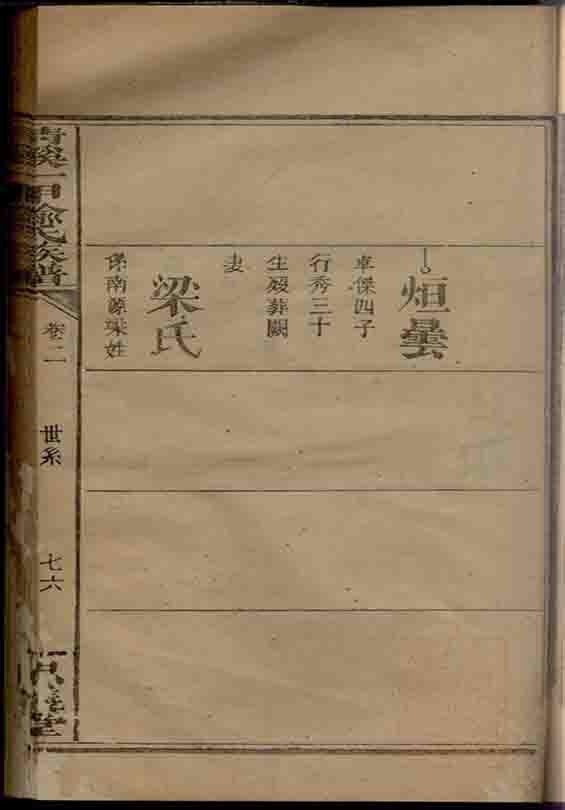 烜曇
卓傑四子
行秀三十
生歿葬闕
妻
梁氏
係南源梁姓
俞氏族譜
卷二
世系
七六
堂